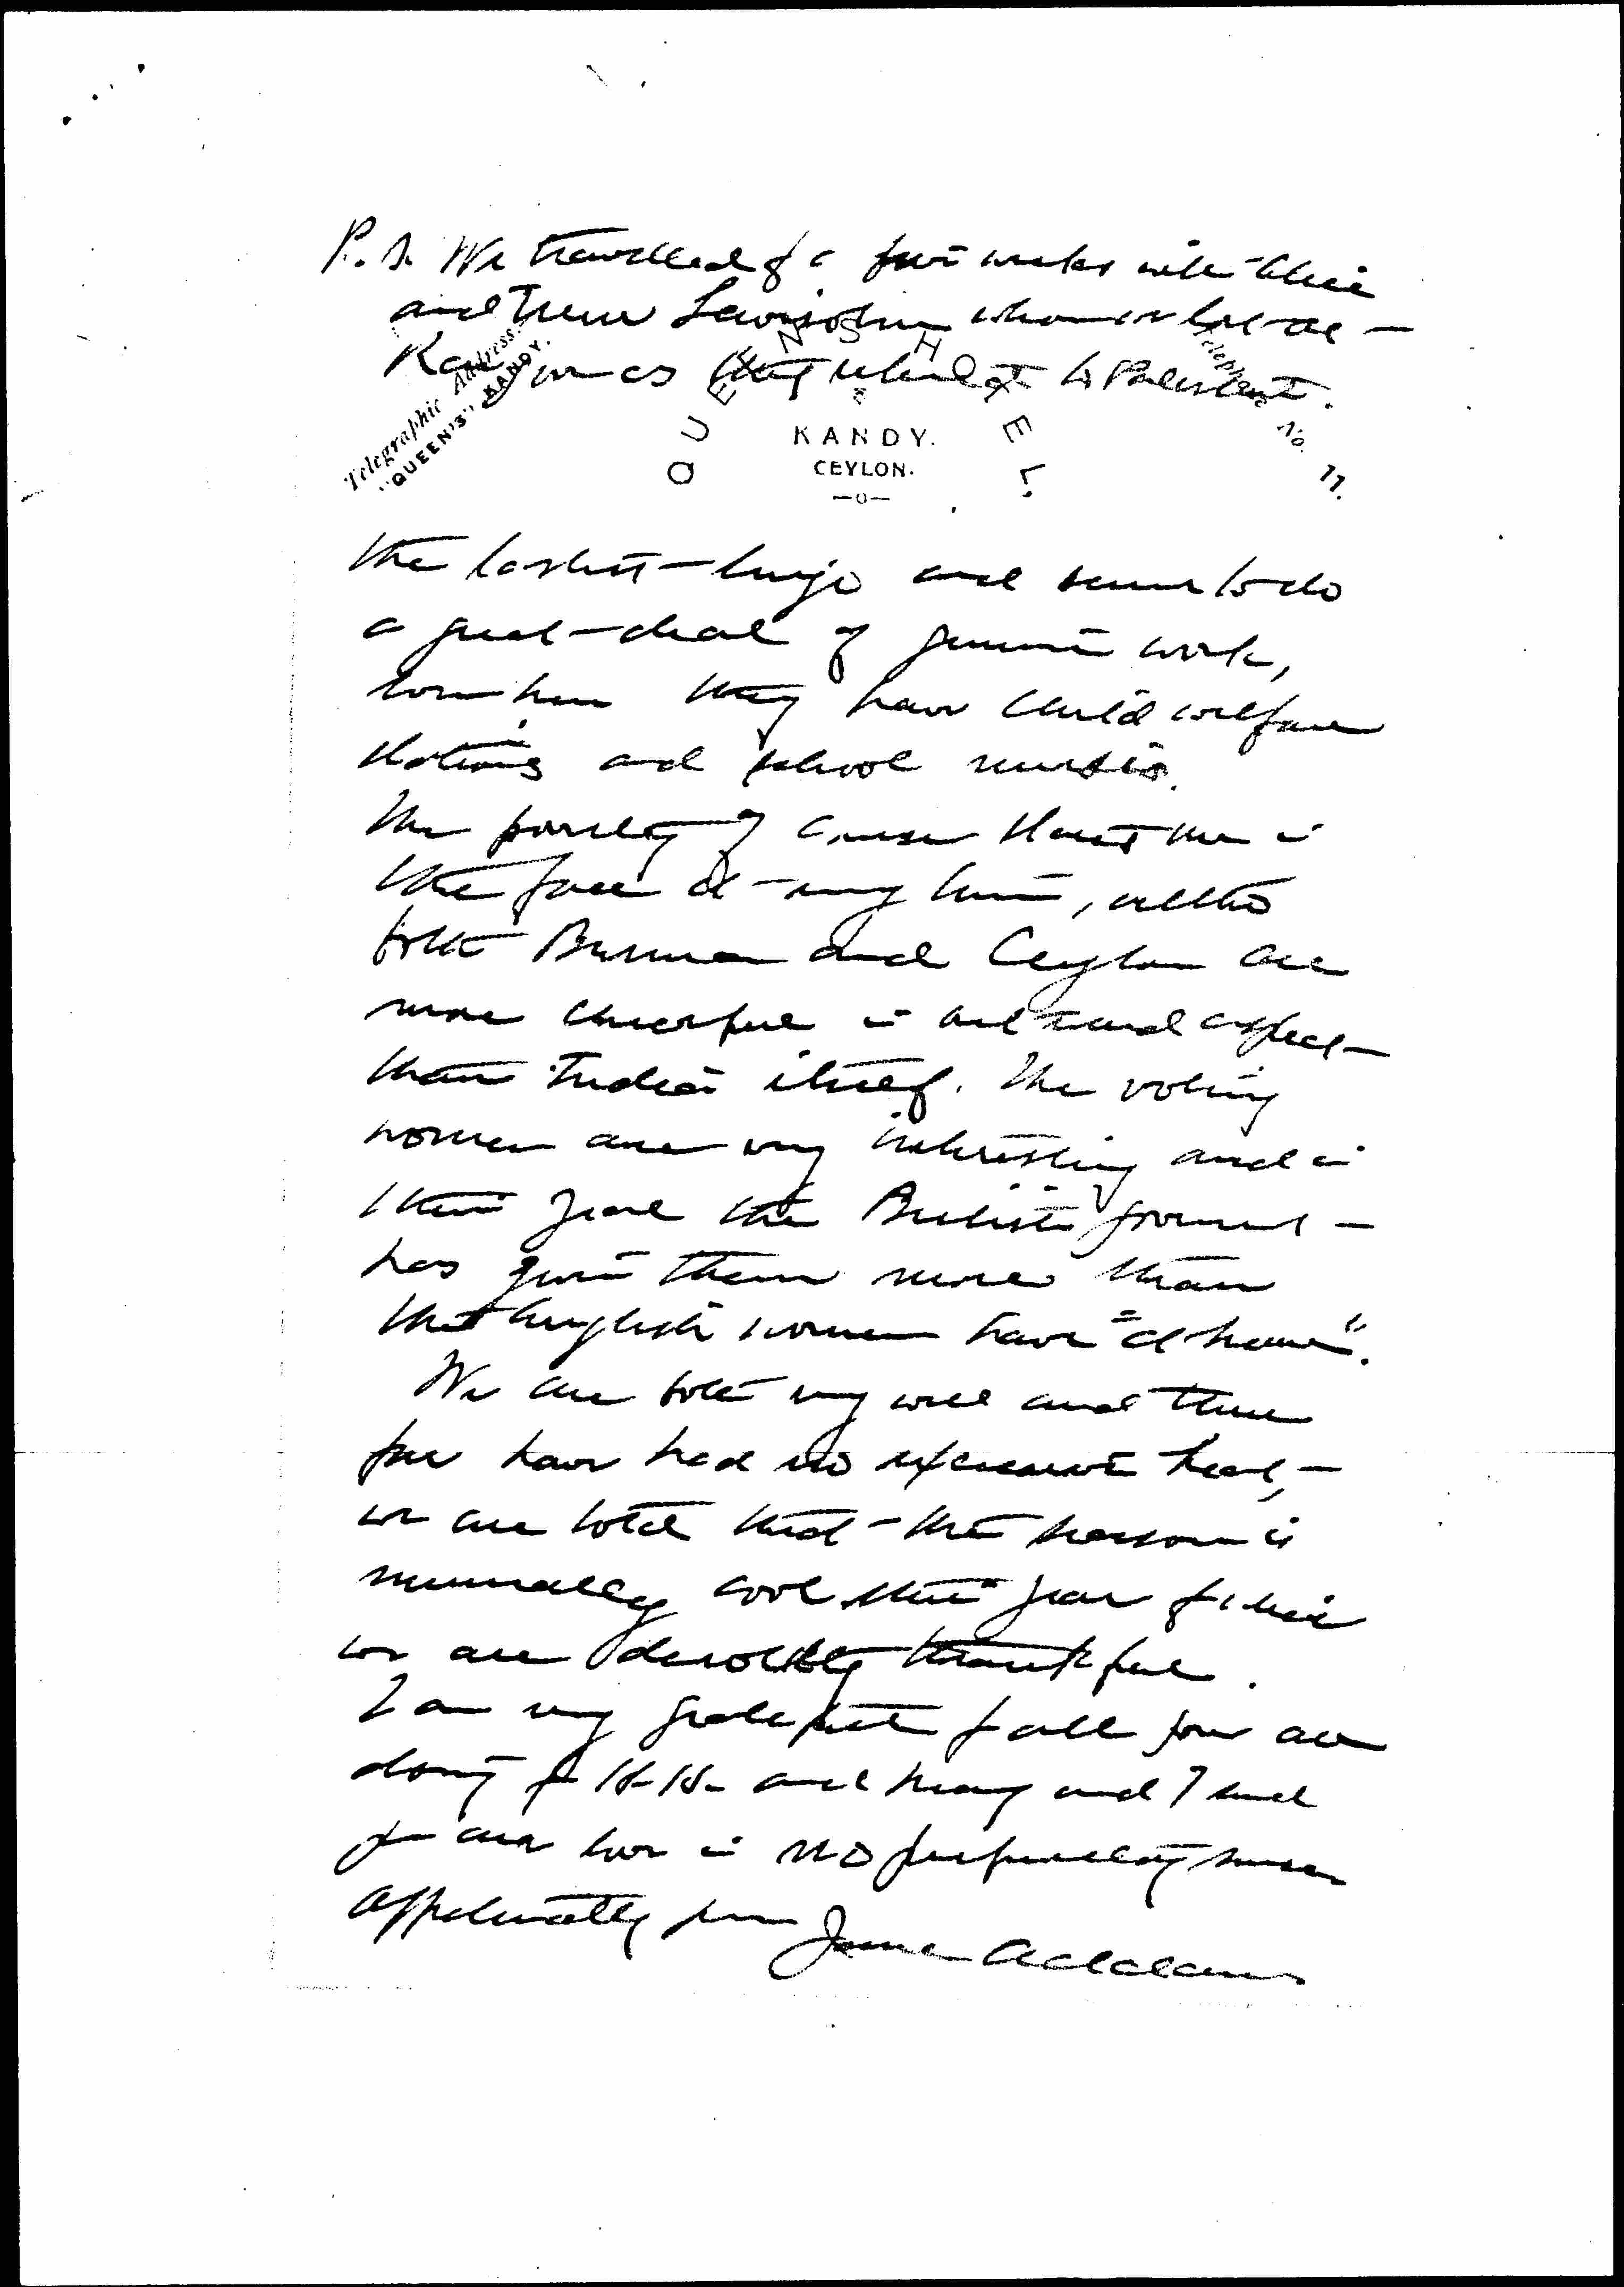 P.S. We travelled for a few weeks with Alice
and Irene Lewisohn whom we lost at —
Rangoon as they returned to Palestine.
Telegraphic Address:
"QUEEN'S" KANDY.
QUEEN'S HOTEL.
Telephone No. 11.
KANDY.
CEYLON.
—o—
the and seem to do
a great deal of genuine work,
here they have child welfare
stations and school nurses.
The poverty of course stares me in
the face at every turn, altho
both Burma and Ceylon are
more cheerful in outward aspect
than India itself. The voting
women are very interesting and in
this year the British government —
has given them more than
the English women have "at home".
We are both very well and thus
far have had no excessive heat, —
we are told that the season is
unusually cool this year for which
we are devoutly thankful.
I am very grateful for all you are
doing for H-H- and Mary and I send
you our love in no perfunctory sense
Affectionately yours Jane Addams